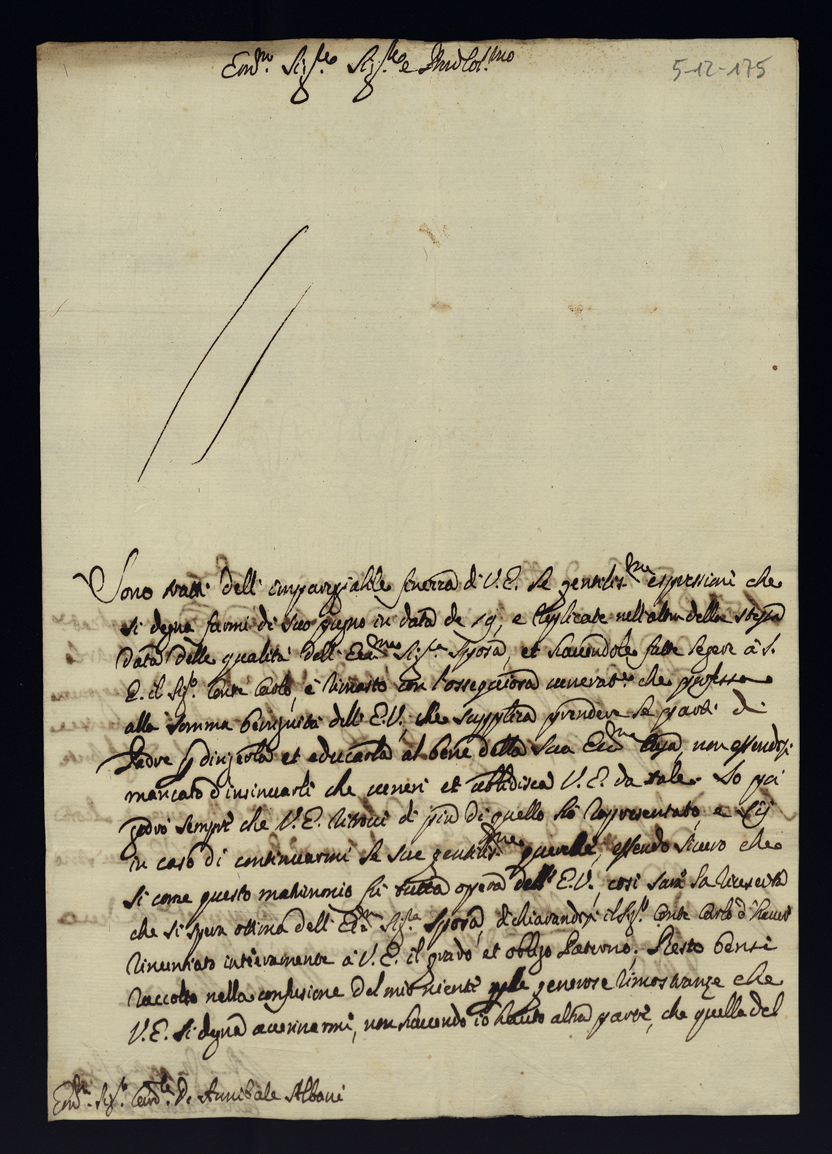 Em.mo Sig.re Sig.re e Pron Col.mo
5-12-175
Sono tratti dell' impareggiabile finezza di V.E. le gentiliss.me espressioni che
si degna farmi di suo pugno in data de 19, e replicate nell'altra della stessa
data delle qualità dell' Ecc.ma Sig.ra Sposa, et havendole fatte legere à S.
E. il Sig.r Conte Carlo, è rimasto con l'ossequiosa venerat.ne che professa
alla somma benignità dell' E.V., che supplica prendere le parti di
Padre p dirigerla et educarla al bene della sua Ecc.ma Casa, non essendosi
mancato d'insinuarli che veneri et obbidisca V.E. da tale. Io poi
godrò sempre che V.E. ritrovi di più di quello hò rappresentato, e
in caso di continuarmi le sue gentiliss.me querelle, essendo sicuro che
si come questo matrimonio fù tutta opera dell' E.V., così sarà la riuscita
che si spera ottima dell' Ecc.ma Sig.ra Sposa, dichiarandosi il Sig.r Conte Carlo d'haver
rinuntiato intieramente à V.E. il grado et obligo Paterno; Resto bensì
raccolto nella confusione del mio niente nelle generose rimostranze che
V.E. si degna avvanzarmi, non havendo io hauto altra parte, che quella del
Em.mo Sig.r Card.le D. Annibale Albani